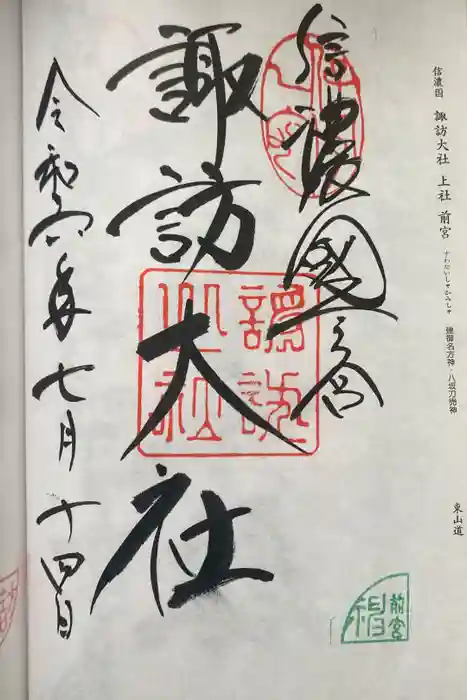 信濃国 諏訪大社 上社 前宮 すわたいしゃかみしゃ 建御名方神・八坂刀売神
東山道
信濃國一之宮
諏訪大社
令和六年七月十四日
諏訪
大社
前宮